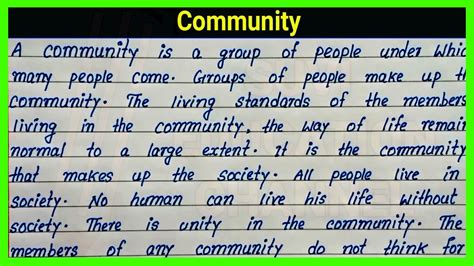 Community
A community is a group of people under whic
many people come. Groups of people make up th
community. The living standards of the members
living in the community, the way of life remain
normal to a large extent. It is the community
that makes up the society. All people live in
society. No human can live his life without
society. There is unity in the community. The
members of any community do not think for